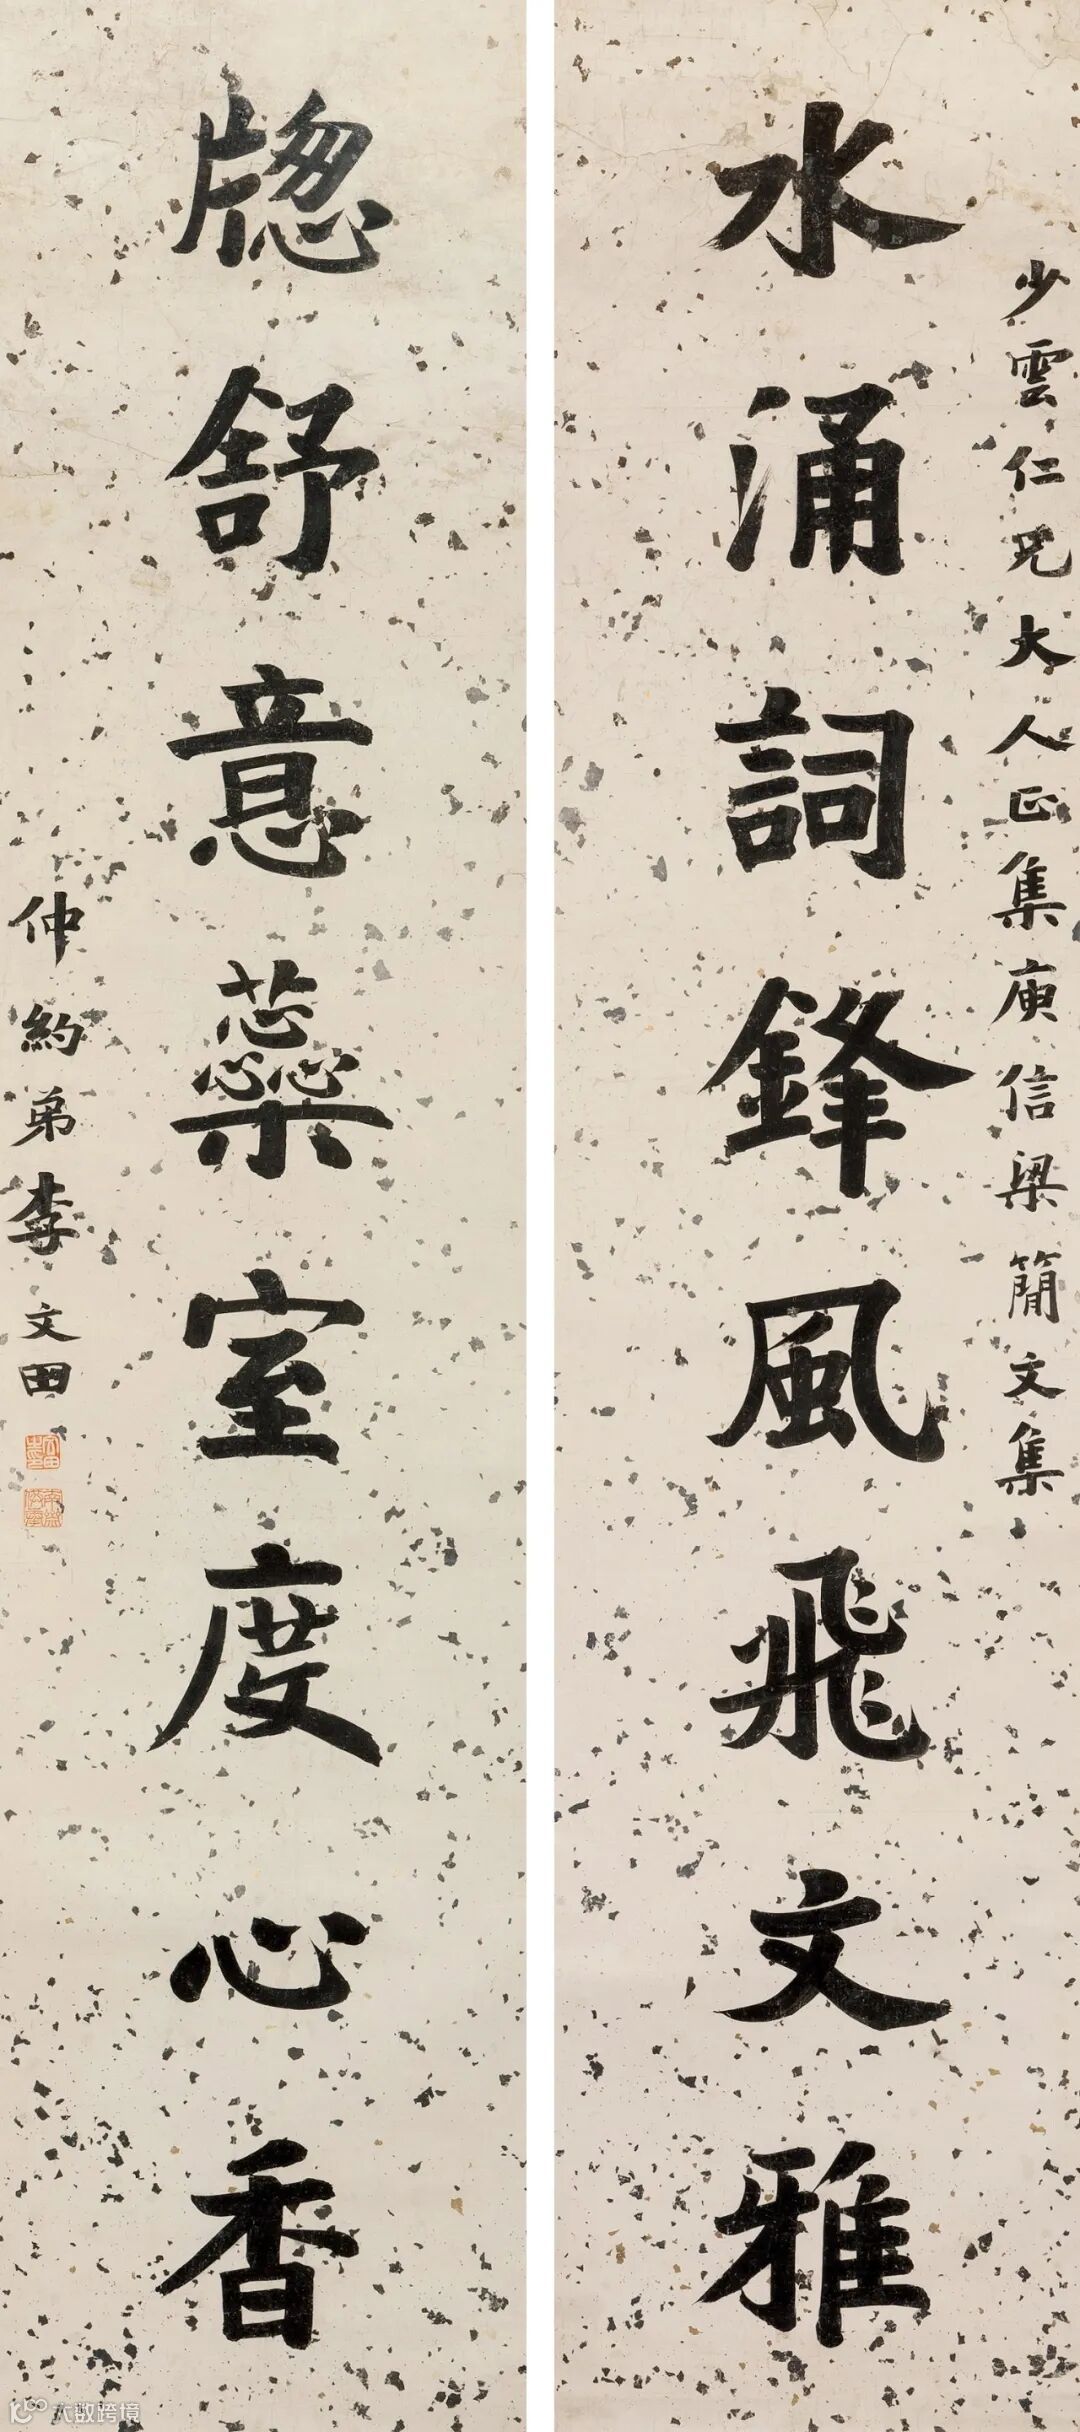 水涌詞鋒風飛文雅
少雲仁兄大人正集庾信梁簡文集
牕舒意蘂室度心香
仲約弟李文田
大数跨境